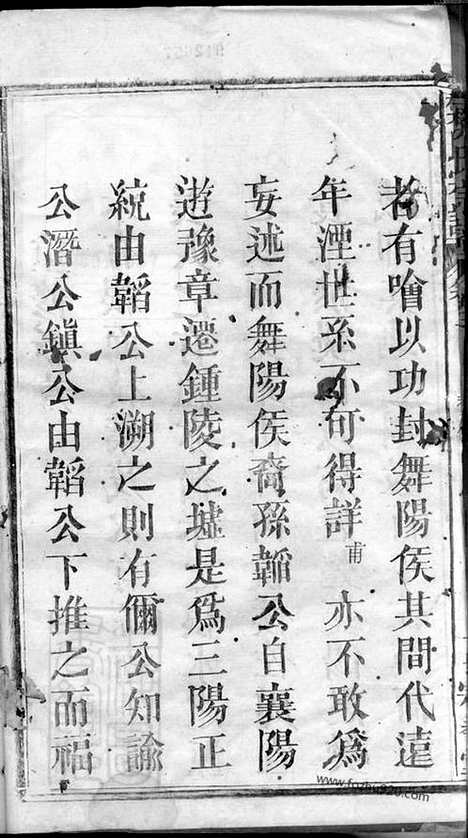 者有噲以功封舞陽侯其間代遠
年湮世系不可得詳甫亦不敢為
妄述而舞陽侯裔孫韜公自襄陽
遊豫章遷鍾陵之墟是為三陽正
統由韜公上溯之則有儞公知諭
公潛公鎮公由韜公下推之而福
www.fozhu920.com